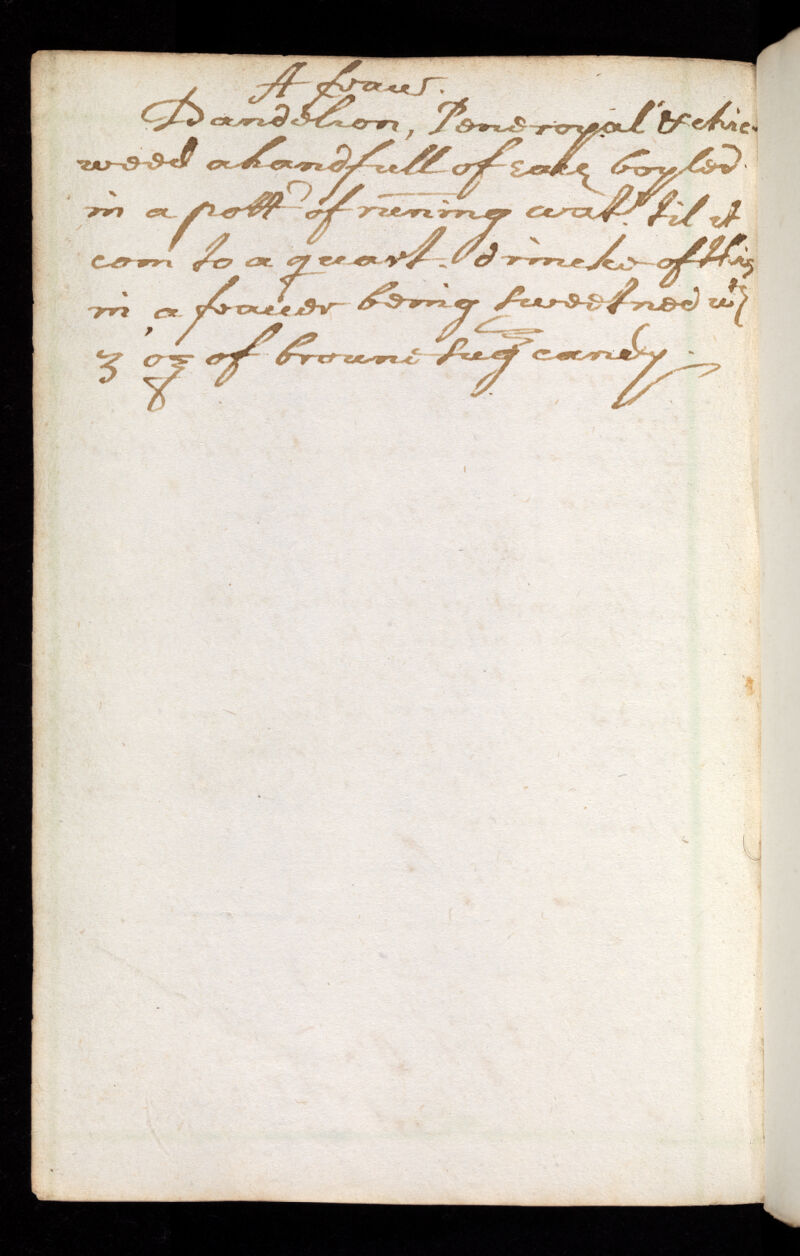 A feauer.
Dandelion, Peneroyal & chic-
weed a handfull of each boyled
in a pottle of running water til it
com to a quart. drincke of this
in a feauer being sweetned wth
3 oz of broune sugr candy.